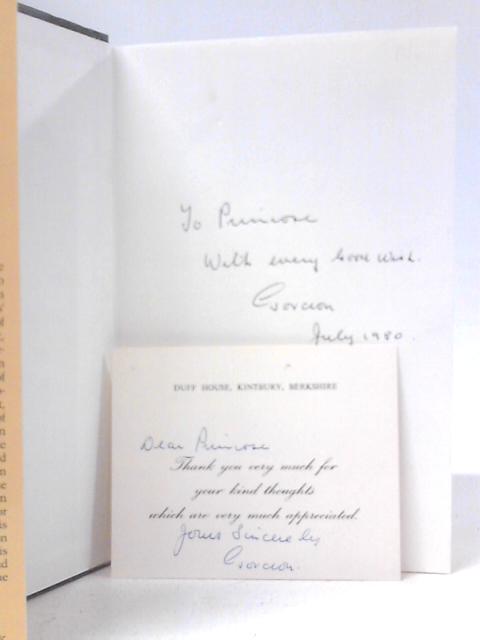 To Primrose
With every Good Wish.
July 1980.
DUFF HOUSE, KINTBURY, BERKSHIRE
Dear Primrose
Thank you very much for
your kind thoughts
which are very much appreciated.
Yours Sincerely